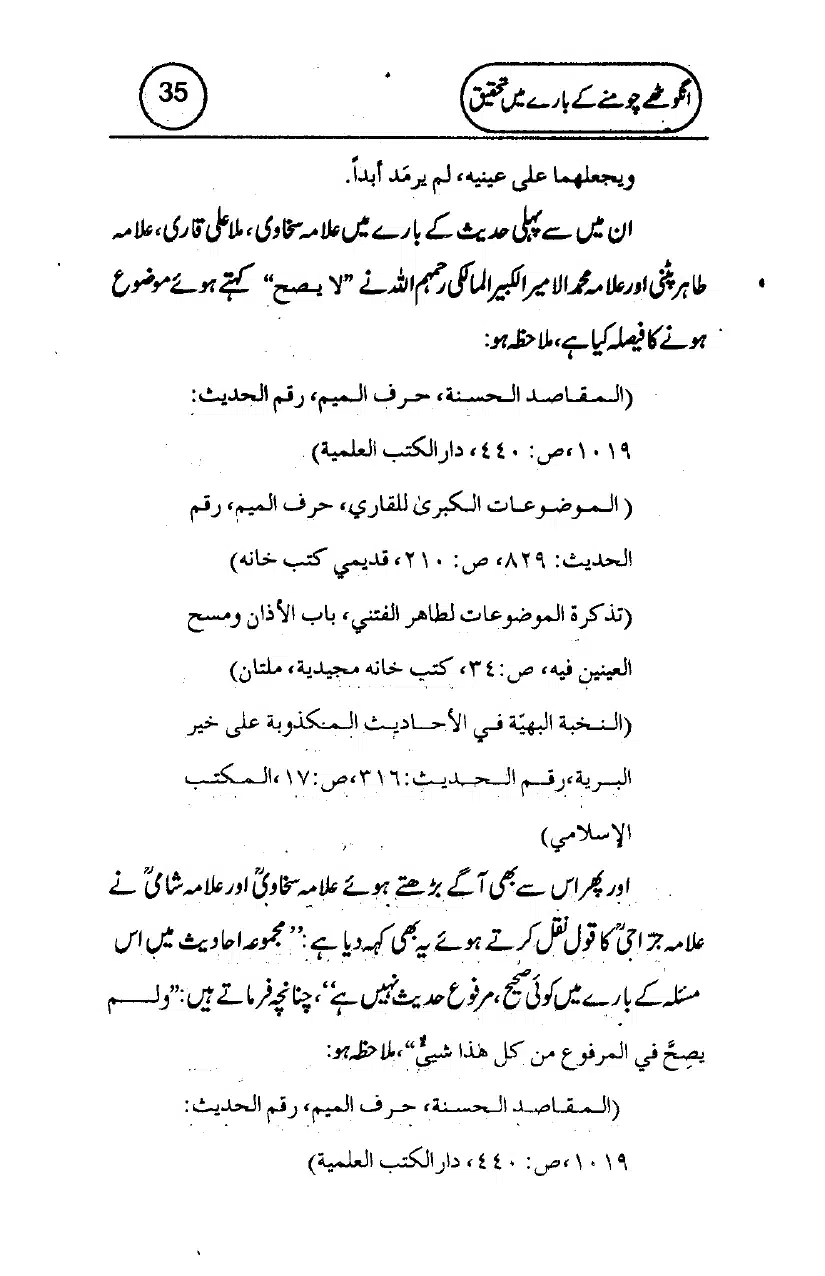 انگوٹھے چومنے کے بارے میں تحقیق
35
ويجعلهما على عينيه، لم يرمَد أبداً.
ان میں سے پہلی حدیث کے بارے میں علامہ سخاوی، ملا علی قاری، علامہ
طاہر پٹنی اور علامہ محمد الامیر الکبیر المالکی رحمہم اللہ نے ”لا يصح“ کہتے ہوئے موضوع
ہونے کا فیصلہ کیا ہے، ملاحظہ ہو:
(المقاصد الحسنة، حرف الميم، رقم الحديث:
١٠١٩، ص: ٤٤٠، دار الكتب العلمية)
(الموضوعات الكبرىٰ للقاري، حرف الميم، رقم
الحديث: ٨٢٩، ص: ٢١٠، قديمي كتب خانه)
(تذكرة الموضوعات لطاهر الفتني، باب الأذان ومسح
العينين فيه، ص: ٣٤، كتب خانه مجيدية، ملتان)
(النخبة البهيّة في الأحاديث المنكذوبة على خير
البرية، رقم الحديث: ٣١٦، ص: ١٧، المكتب
الإسلامي)
اور پھر اس سے بھی آگے بڑھتے ہوئے علامہ سخاویؒ اور علامہ شامیؒ نے
علامہ جرّاحیؒ کا قول نقل کرتے ہوئے یہ بھی کہہ دیا ہے: ”مجموعہ احادیث میں اس
مسئلہ کے بارے میں کوئی صحیح، مرفوع حدیث نہیں ہے“، چنانچہ فرماتے ہیں: ”ولم
يصِحَّ في المرفوع من كل هذا شيئٌ“، ملاحظہ ہو:
(المقاصد الحسنة، حرف الميم، رقم الحديث:
١٠١٩، ص: ٤٤٠، دار الكتب العلمية)